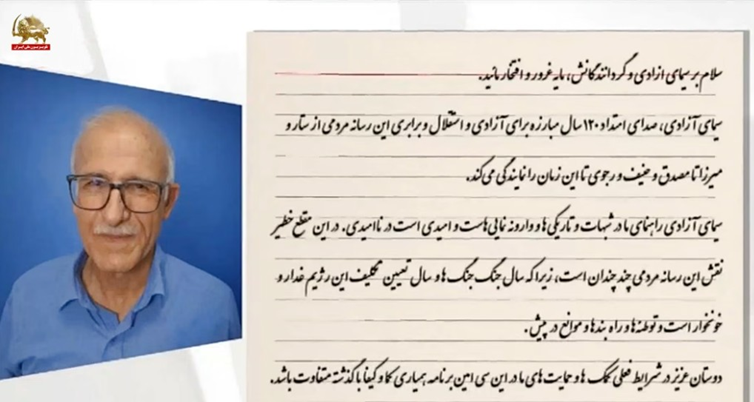 سلام بر سیمای آزادی و گردانندگانش، مایه غرور و افتخار مائید.
سیمای آزادی، صدای امتداد ۱۲۰ سال مبارزه برای آزادی و استقلال و برابری این رسانه مردمی از ستار و
میرزا تا مصدق و حنیف و رجوی تا این زمان را نمایندگی می‌کند.
سیمای آزادی راهنمای ما در شبهات و تاریکی‌ها و وارونه نمایی‌هاست و امیدی است در ناامیدی. در این مقطع خطیر
نقش این رسانه مردمی چند چندان است، زیرا که سال جنگ جنگ‌ها و سال تعیین تکلیف این رژیم غدار و
خونخوار است و توطئه‌ها و راه بندها و موانع در پیش.
دوستان عزیز در شرایط فعلی کمک‌ها و حمایت‌های ما در این سی امین برنامه همیاری کما و کیفا با گذشته متفاوت باشد.